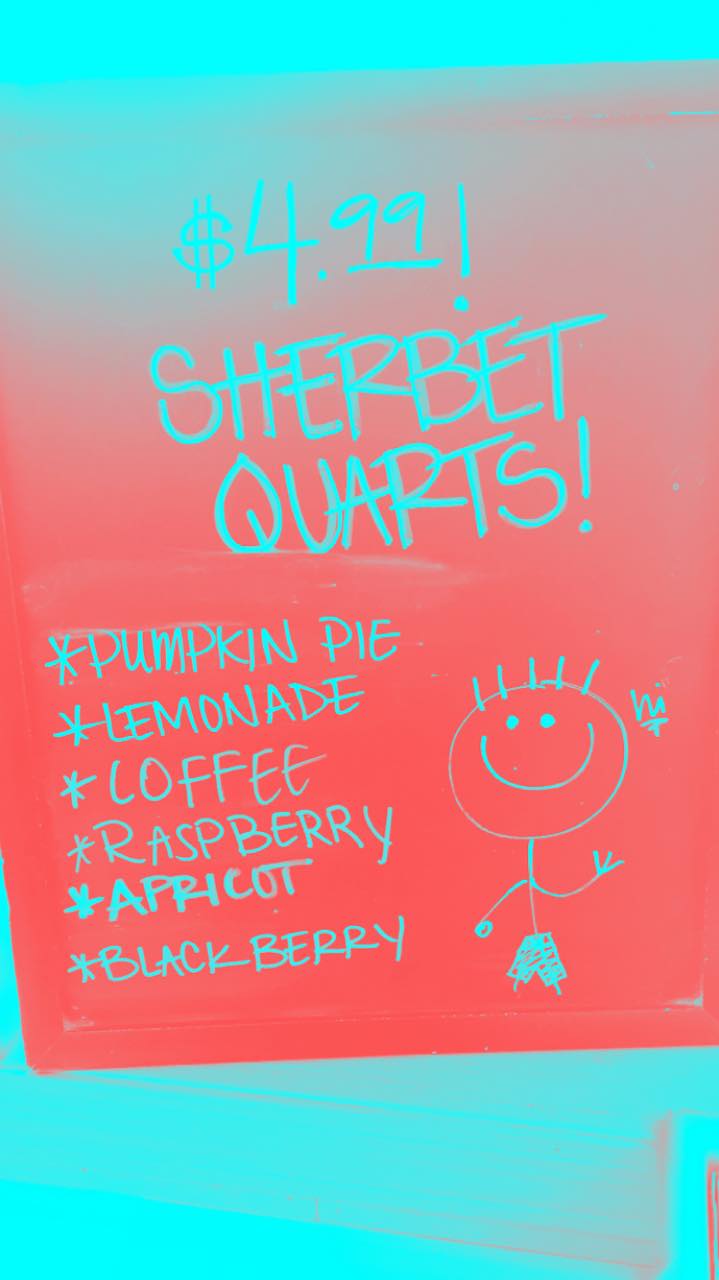 $4.99!
SHERBET
QUARTS!
*PUMPKIN PIE
*LEMONADE
*COFFEE
*RASPBERRY
*APRICOT
*BLACKBERRY
hi